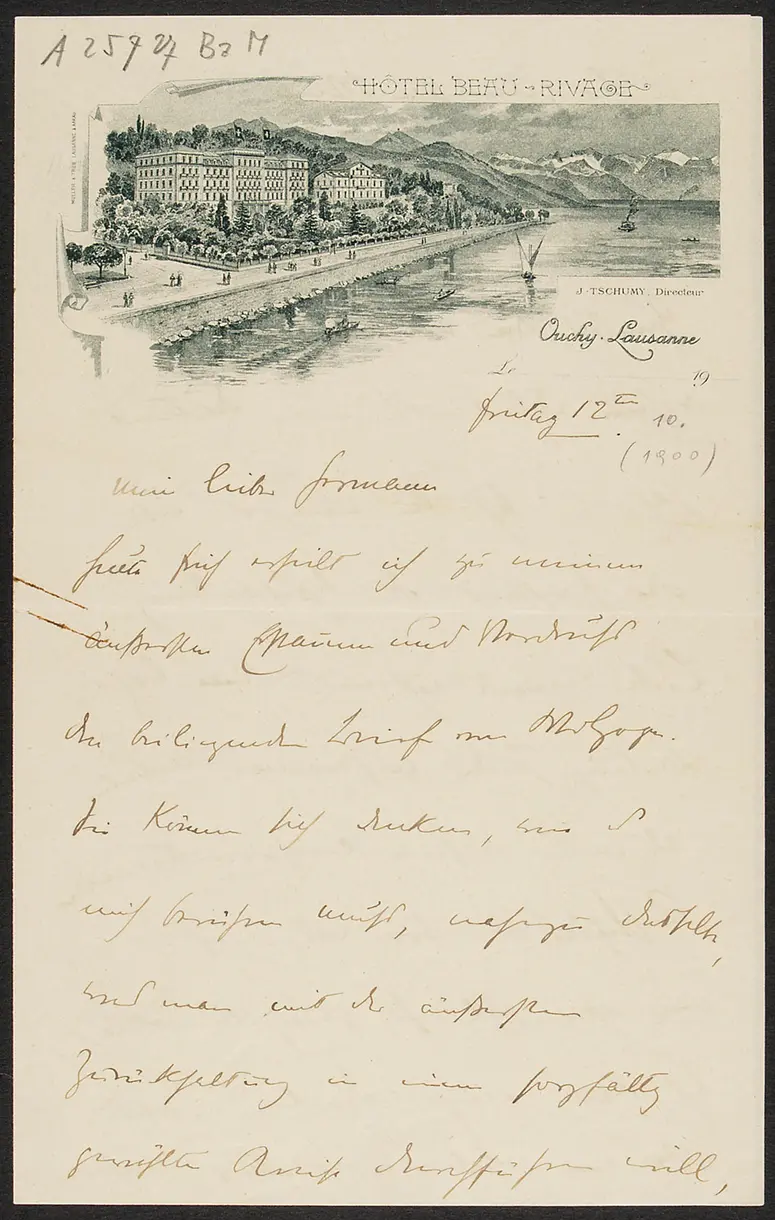 A 25927 BaM
HÔTEL BEAU-RIVAGE
MÜLLER & TRÜB LAUSANNE & AARAU
J. TSCHUMY, Directeur
Ouchy-Lausanne
Le 19
freitag 12ten 10.
(1900)
mein lieber
heute früh erhielt ich zu meinem
äußersten Erstaunen und Verdruß
den beiliegenden Brief von Wolzogen.
Sie können sich denken, wie es
mich berühren muß, nahezu dasselbe,
was man mit der äußersten
Zurückhaltung in einem sorgfältig
gewählten Kreise durchführen will,